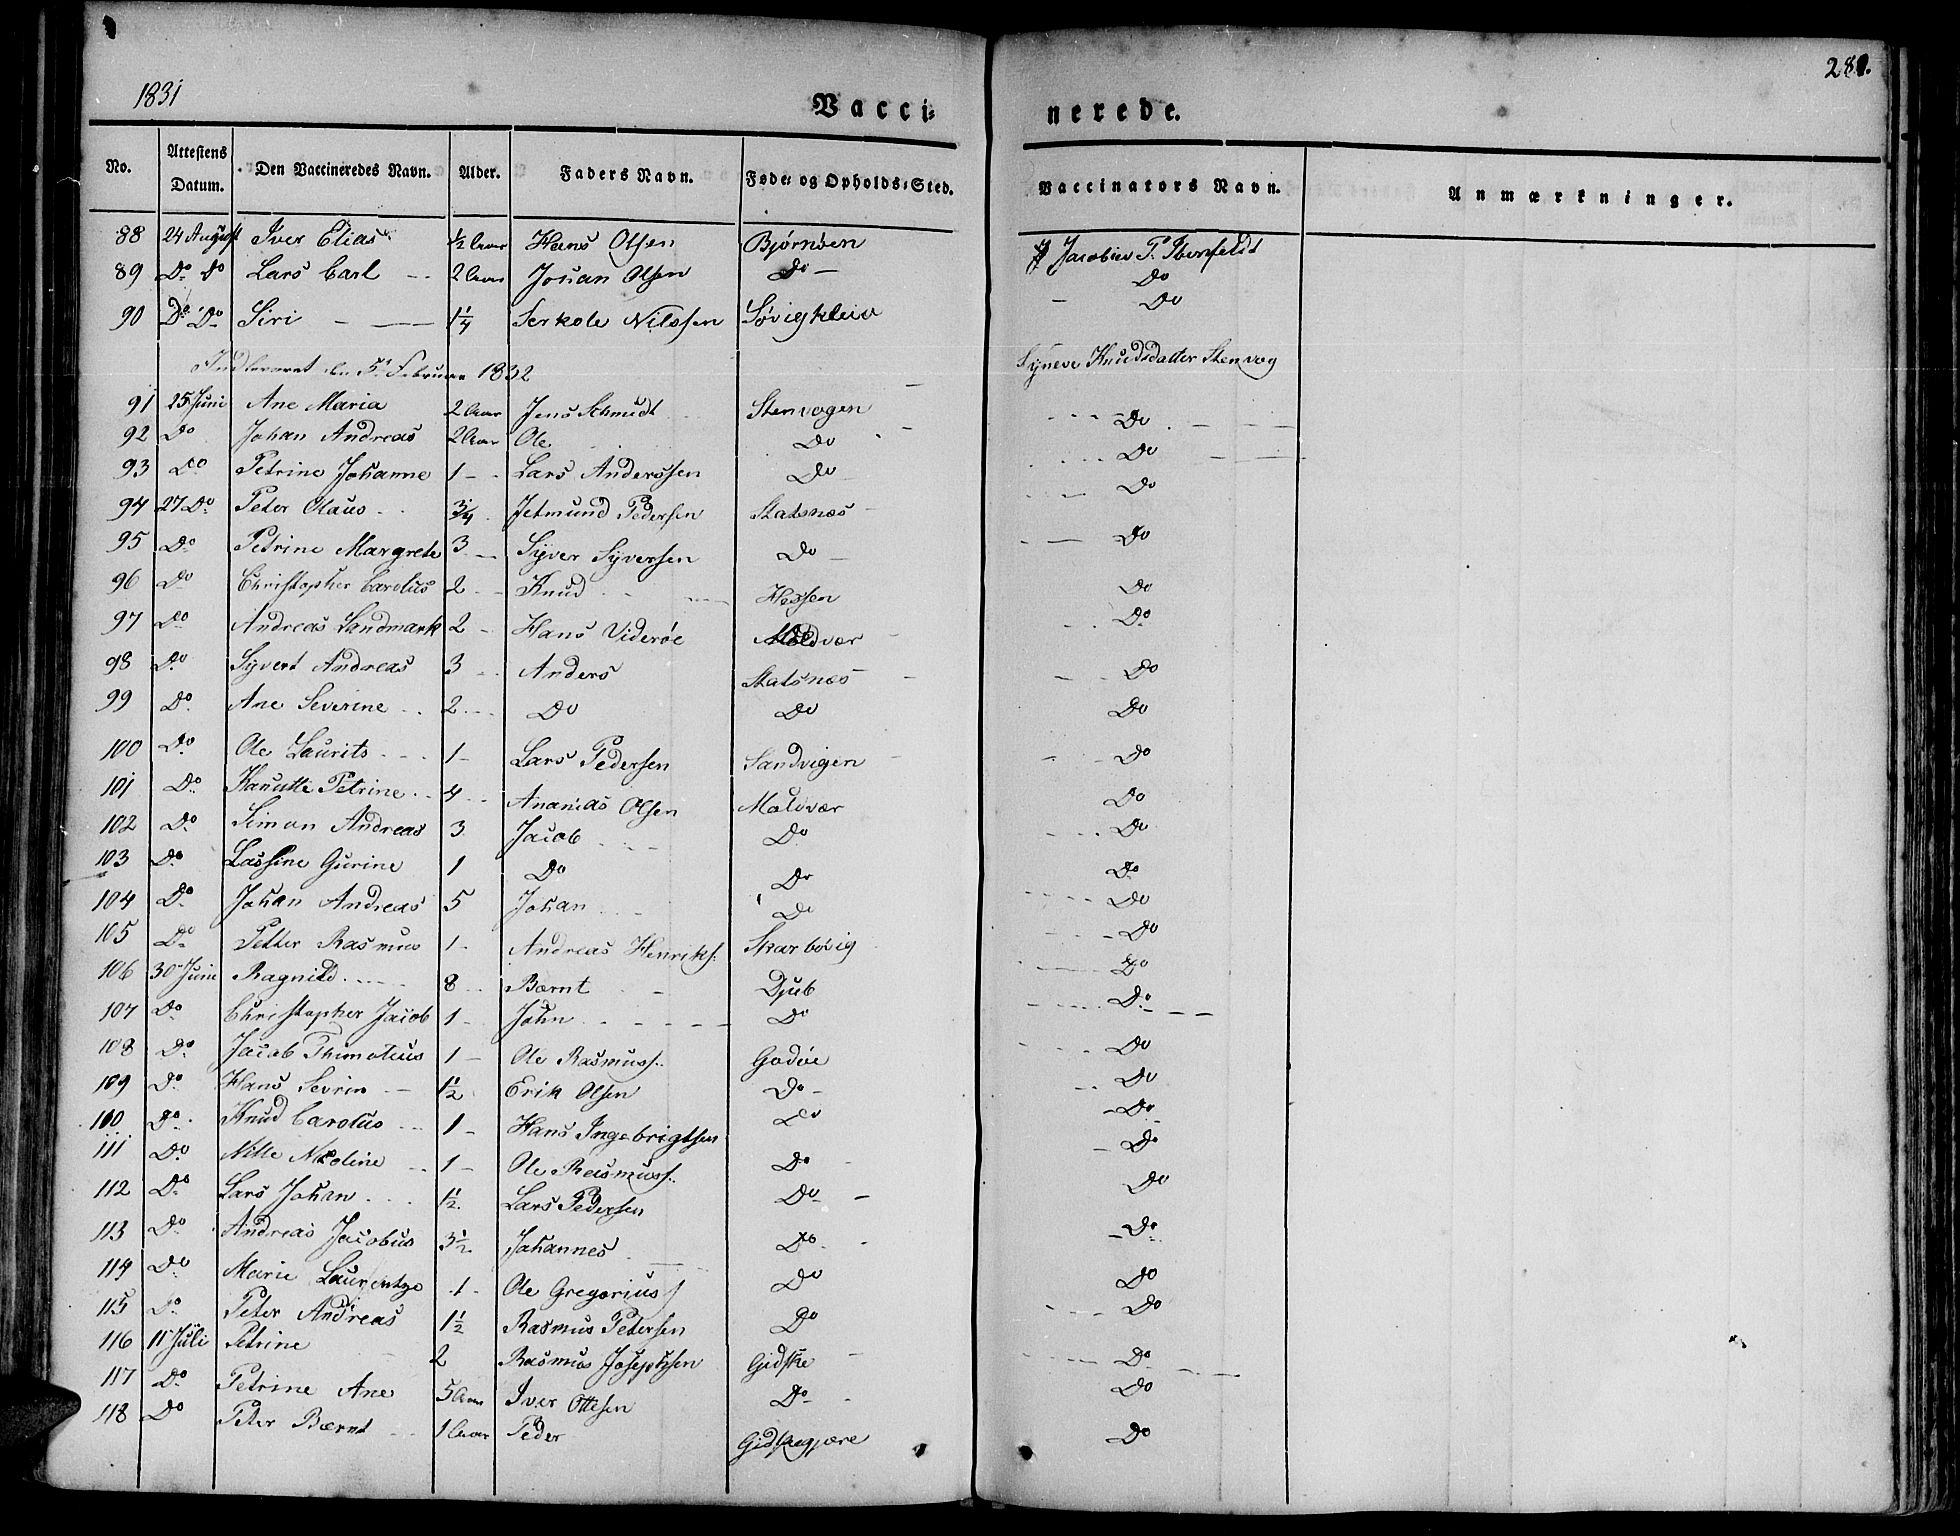 1831
281.
Vacci- nerede.
No. Attestens Datum. Den Vaccineredes Navn. Alder. Faders Navn. Føde- og Opholds-Sted. Vaccinators Navn. Anmærkninger.
88 24 August Iver Elias ½ Aar Hans Olsen Bjørnøen Jacobine P.
89 Do Do Lars Carl 2 Aar Johan Olsen Do Do
90 Do Do Siri 1¼ Serkole Nilssen Søvigkleiv Do
Indleveret den 5te Februar 1832 Syneve Knudsdatter Stenvog
91 25 Juni Ane Maria 2 Aar Jens Schmidt Stenvogen Do
92 Do Johan Andreas 2 Aar Ole Do Do
93 Do Petrine Johanne 1 Lars Anderssen Do Do
94 27 Do Peter Olaus ¾ Jetmund Pedersen Statsnæs
95 Do Petrine Margrete 3 Syver Syversen Do Do
96 Do Christopher Carolus 2 Knud Hessen Do
97 Do Andreas Landmark 2 Hans Viderøe Moldvær Do
98 Do Syvert Andreas 3 Anders Statsnæs Do
99 Do Ane Severine 2 Do Do Do
100 Do Ole Laurits 1 Lars Pedersen Sandvigen Do
101 Do Kanutte Petrine 4 Ananias Olsen Moldvær Do
102 Do Simon Andreas 3 Jacob Do Do
103 Do Lassine Gurine 1 Do Do Do
104 Do Johan Andreas 5 Johan Do Do
105 Do Petter Rasmus 1 Andreas Henriks. Skarbøvig Do
106 30 Juni Ragnild 8 Bærnt Djub Do
107 Do Christopher Jacob 1 John Do Do
108 Do Jacob Thimotius 1 Ole Rasmuss. Godøe Do
109 Do Hans Sevrin 1½ Erik Olsen Do Do
100 Do Knud Carolus 1 Hans Ingebrigtsen Do Do
111 Do Nille Nicoline 1 Ole Rasmuss. Do Do
112 Do Lars Johan 1½ Lars Pedersen Do Do
113 Do Andreas Jacobus 3½ Johannes Do Do
114 Do Marie Laurentze 1 Ole Gregoriuss Do Do
115 Do Peter Andreas 1½ Rasmus Petersen Do Do
116 11 Juli Petrine 2 Rasmus Josephsen Gidske Do
117 Do Petrine Ane 5 Aar Iver Ottesen Do Do
118 Do Peter Bærnt 1 Aar Peder Gidskegjære Do